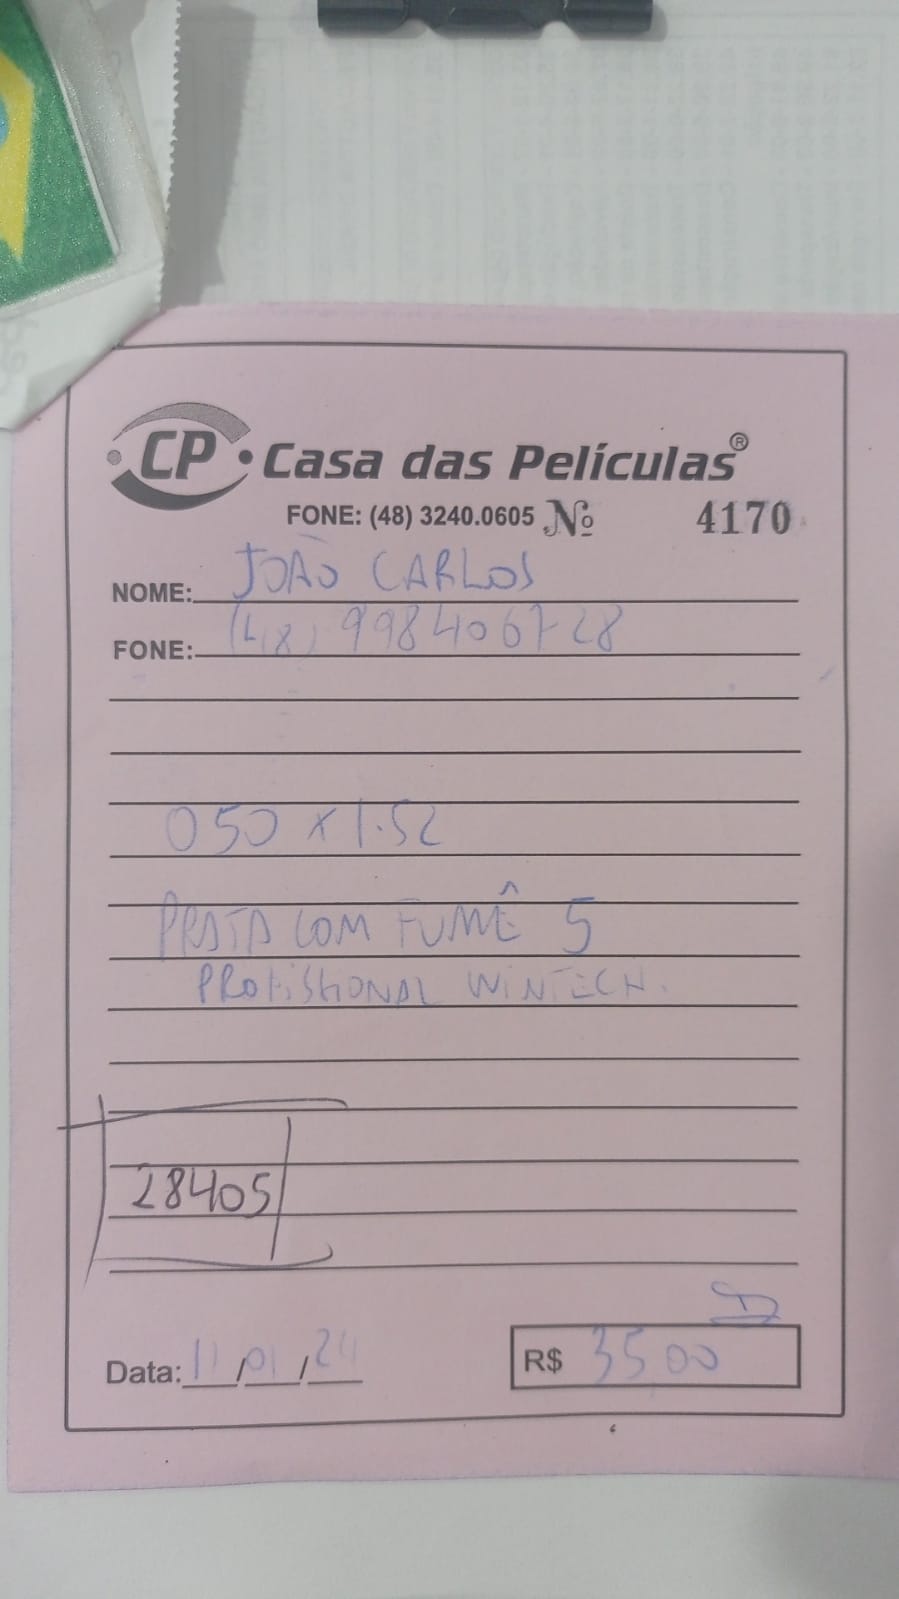 CP • Casa das Películas®
FONE: (48) 3240.0605 Nº 4170
NOME: JOÃO CARLOS
FONE: (48) 998406728
050 x 1.52
PRATA COM FUMÊ 5
PROFISSIONAL WINTECH.
28405
Data: 11/01/24 R$ 35,00